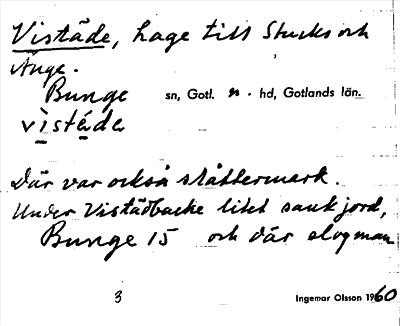 Vistäde, hage till Stucks och
Änge.
Bunge sn, Gotl. n - hd, Gotlands län.
vìstéde
Där var också slåttermark.
Under Vistädbacke litet sank jord,
Bunge 15 och där slog man
3 Ingemar Olsson 1960